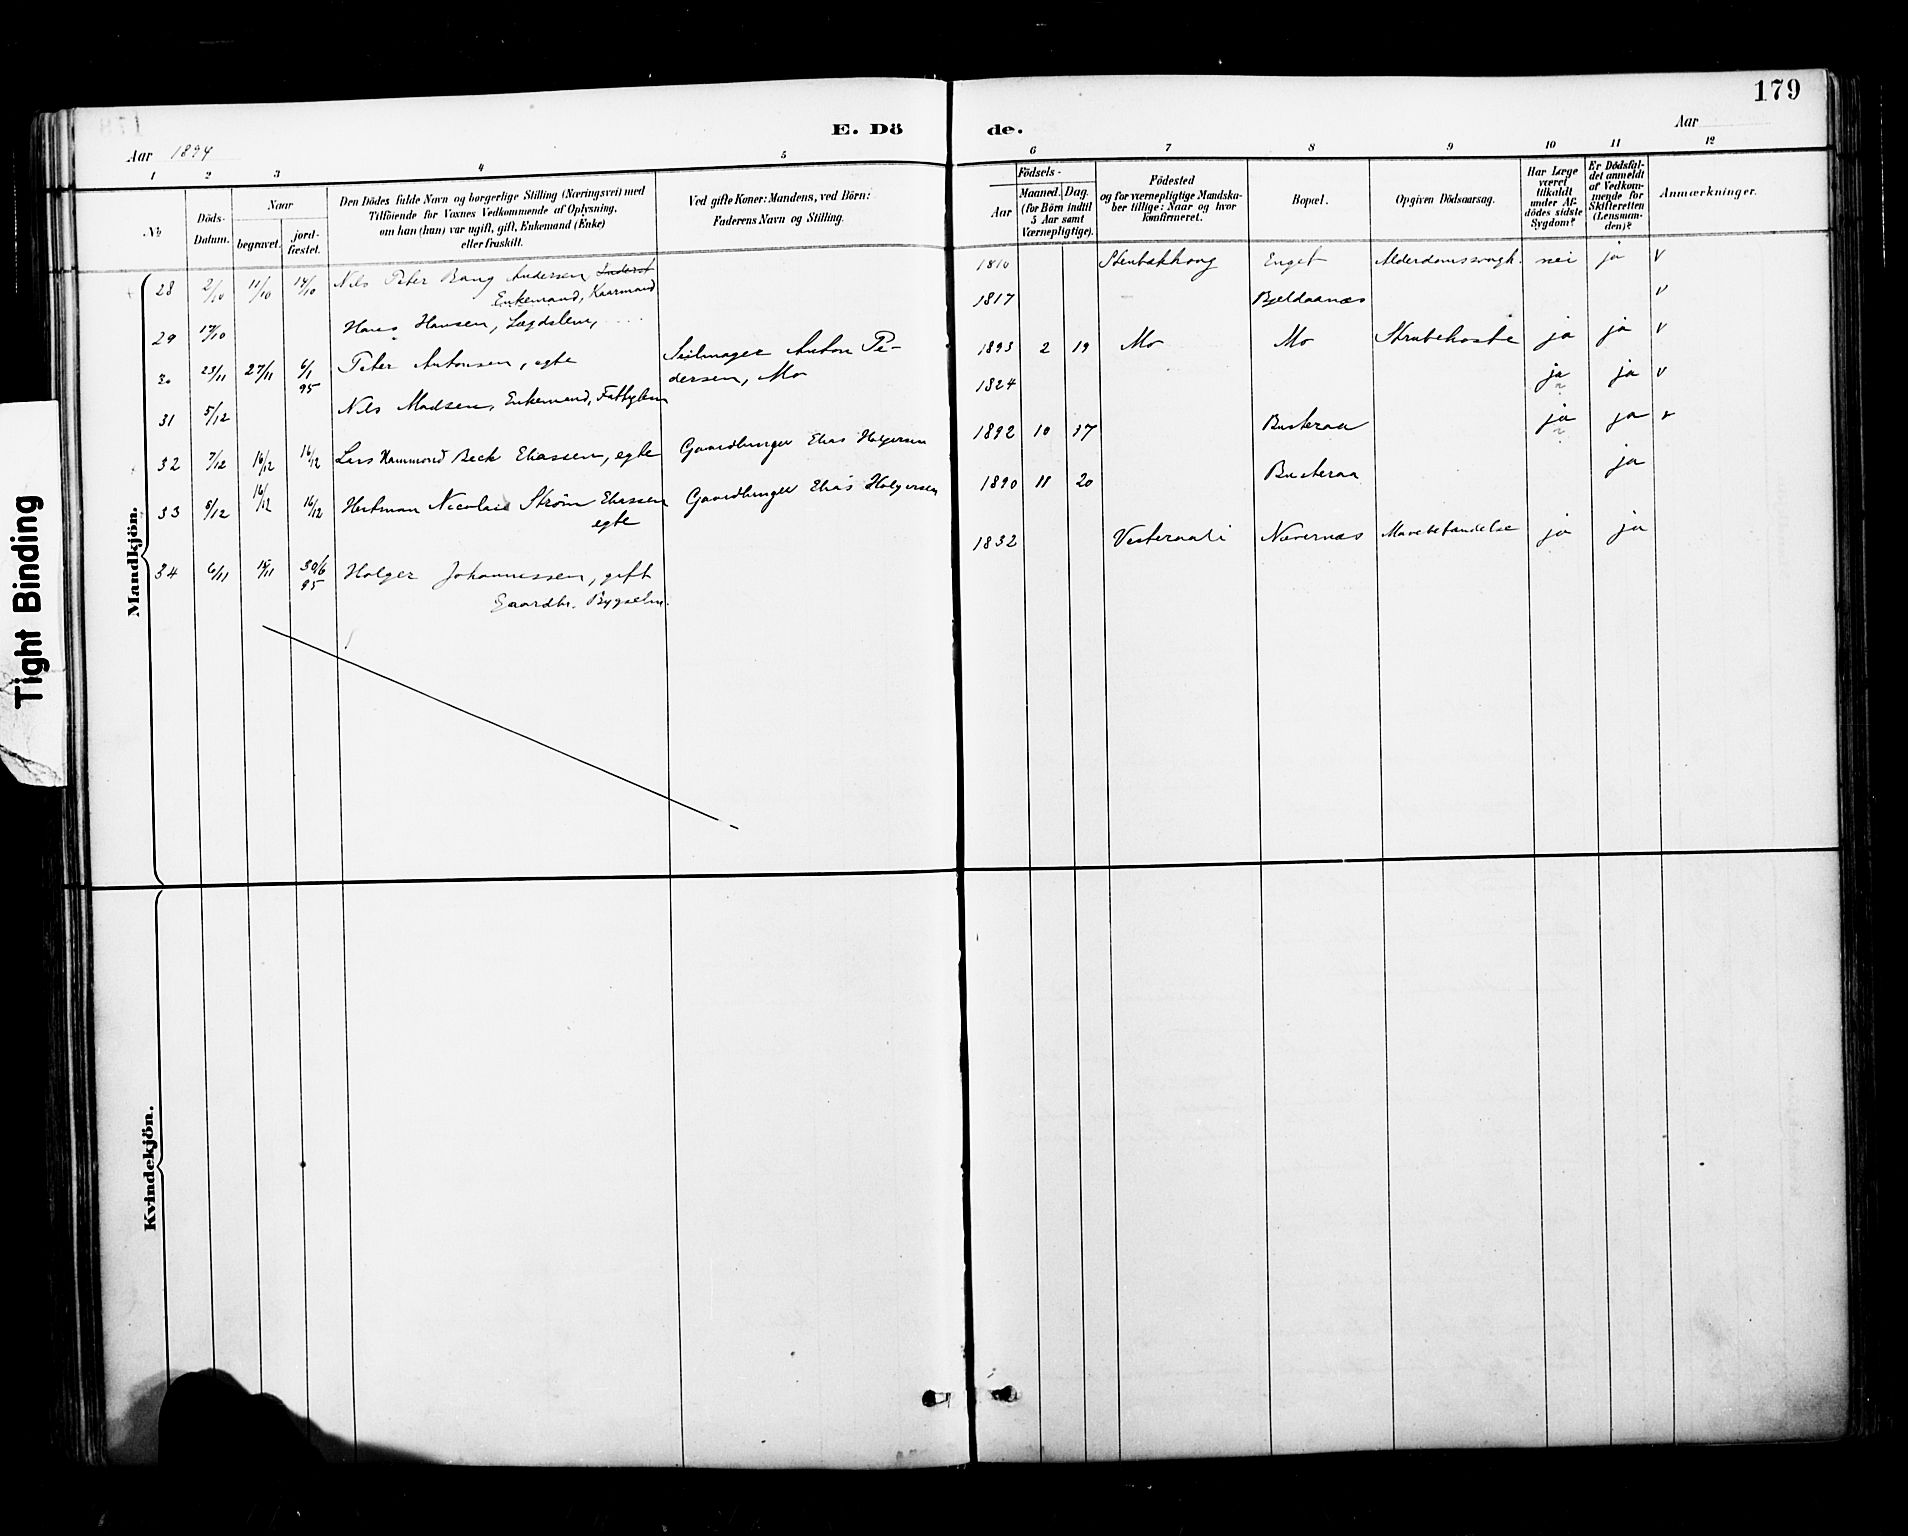 179
E. Dö
de.
Aar 1894
Aar
1 2 3 4 5 6 7 8 9 10 11 12
№
Döds-
Datum.
Naar
begravet.
jord-
fæstet.
Den Dödes fulde Navn og borgerlige Stilling (Næringsvei) med
Tilföiende for Voxnes Vedkommende af Oplysning,
om han (hun) var ugift, gift, Enkemand (Enke)
eller fraskilt.
Ved gifte Koner: Mandens, ved Börn:
Faderens Navn og Stilling.
Födsels-
Aar
Maaned. Dag.
(for Börn indtil
5 Aar samt
Værnepligtige).
Födested
og for værnepligtige Mandska-
ber tillige: Naar og hvor
konfirmeret.
Bopæl.
Opgiven Dödsaarsag.
Har Læge
været
tilkaldt
under Af-
dödes sidste
Sygdom?
Er Dödsfal-
det anmeldt
af Vedkom-
mende for
Skifteretten
(Lensman-
den)?
Anmærkninger.
Mandkjön.
28 2/10 11/10 14/10 Nils Peter Bang Andersen, Inderst 1810 Stenbakhaug Enget Alderdomssvagh. nei ja v
Enkemand, Kaarmand
29 17/10 Hans Hansen, Lægdslem, 1817 Bjeldaanæs v
30 23/11 27/11 6/1 95 Peter Antonsen, egte Anton Pe-
dersen, Mo 1893 2 19 Mo Mo Strubehoste ja ja v
31 5/12 Nils Madsen, Enkemand, Fattiglem 1824 ja ja v
32 7/12 16/12 16/12 Lars Hammond Beck Eliassen, egte Gaardbruger Elias Holgersen 1892 10 17 Busteraa ja ja v
33 8/12 16/12 16/12 Hertman Nicolai Strøm Eliassen Gaardbruger Elias Holgersen 1890 11 20 Busteraa ja
egte
34 6/11 18/11 30/6 95 Holger Johannessen, gift 1832 Vesteraali Nævernæs Mavebetændelse ja ja
Gaardbr. Bygselm.
Kvindekjön.
Tight Binding